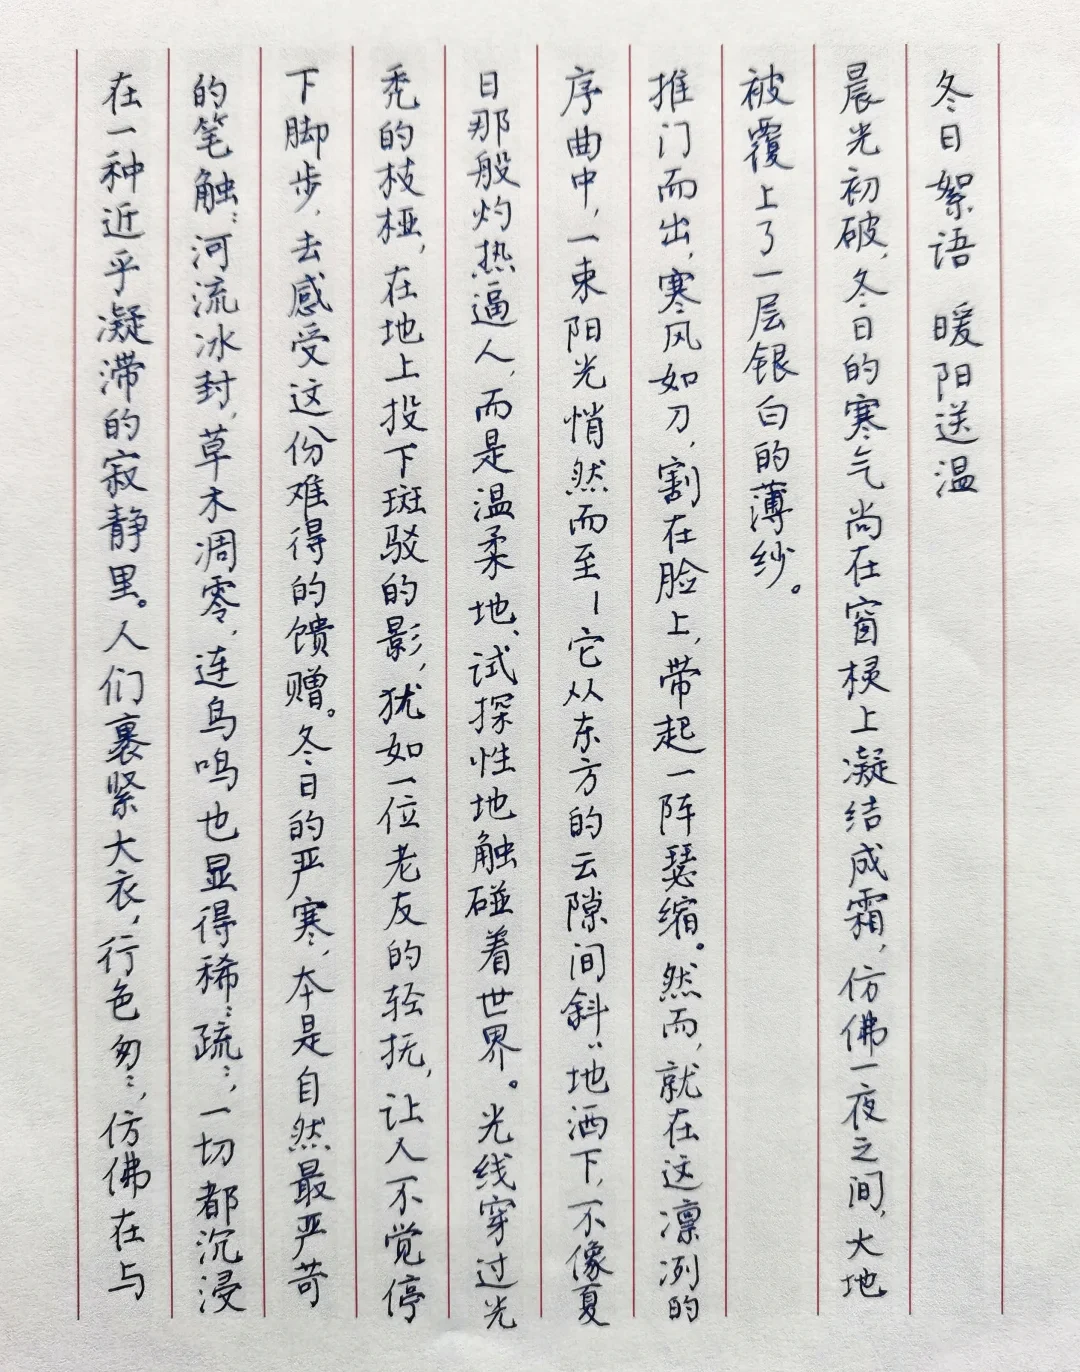 冬日絮语 暖阳送温
晨光初破,冬日的寒气尚在窗棂上凝结成霜,仿佛一夜之间,大地
被覆上了一层银白的薄纱。
推门而出,寒风如刀,割在脸上,带起一阵瑟缩。然而,就在这凛冽的
序曲中,一束阳光悄然而至—它从东方的云隙间斜〻地洒下,不像夏
日那般灼热逼人,而是温柔地、试探性地触碰着世界。光线穿过光
秃的枝桠,在地上投下斑驳的影,犹如一位老友的轻抚,让人不觉停
下脚步,去感受这份难得的馈赠。冬日的严寒,本是自然最严苛
的笔触:河流冰封,草木凋零,连鸟鸣也显得稀〻疏〻,一切都沉浸
在一种近乎凝滞的寂静里。人们裹紧大衣,行色匆〻,仿佛在与